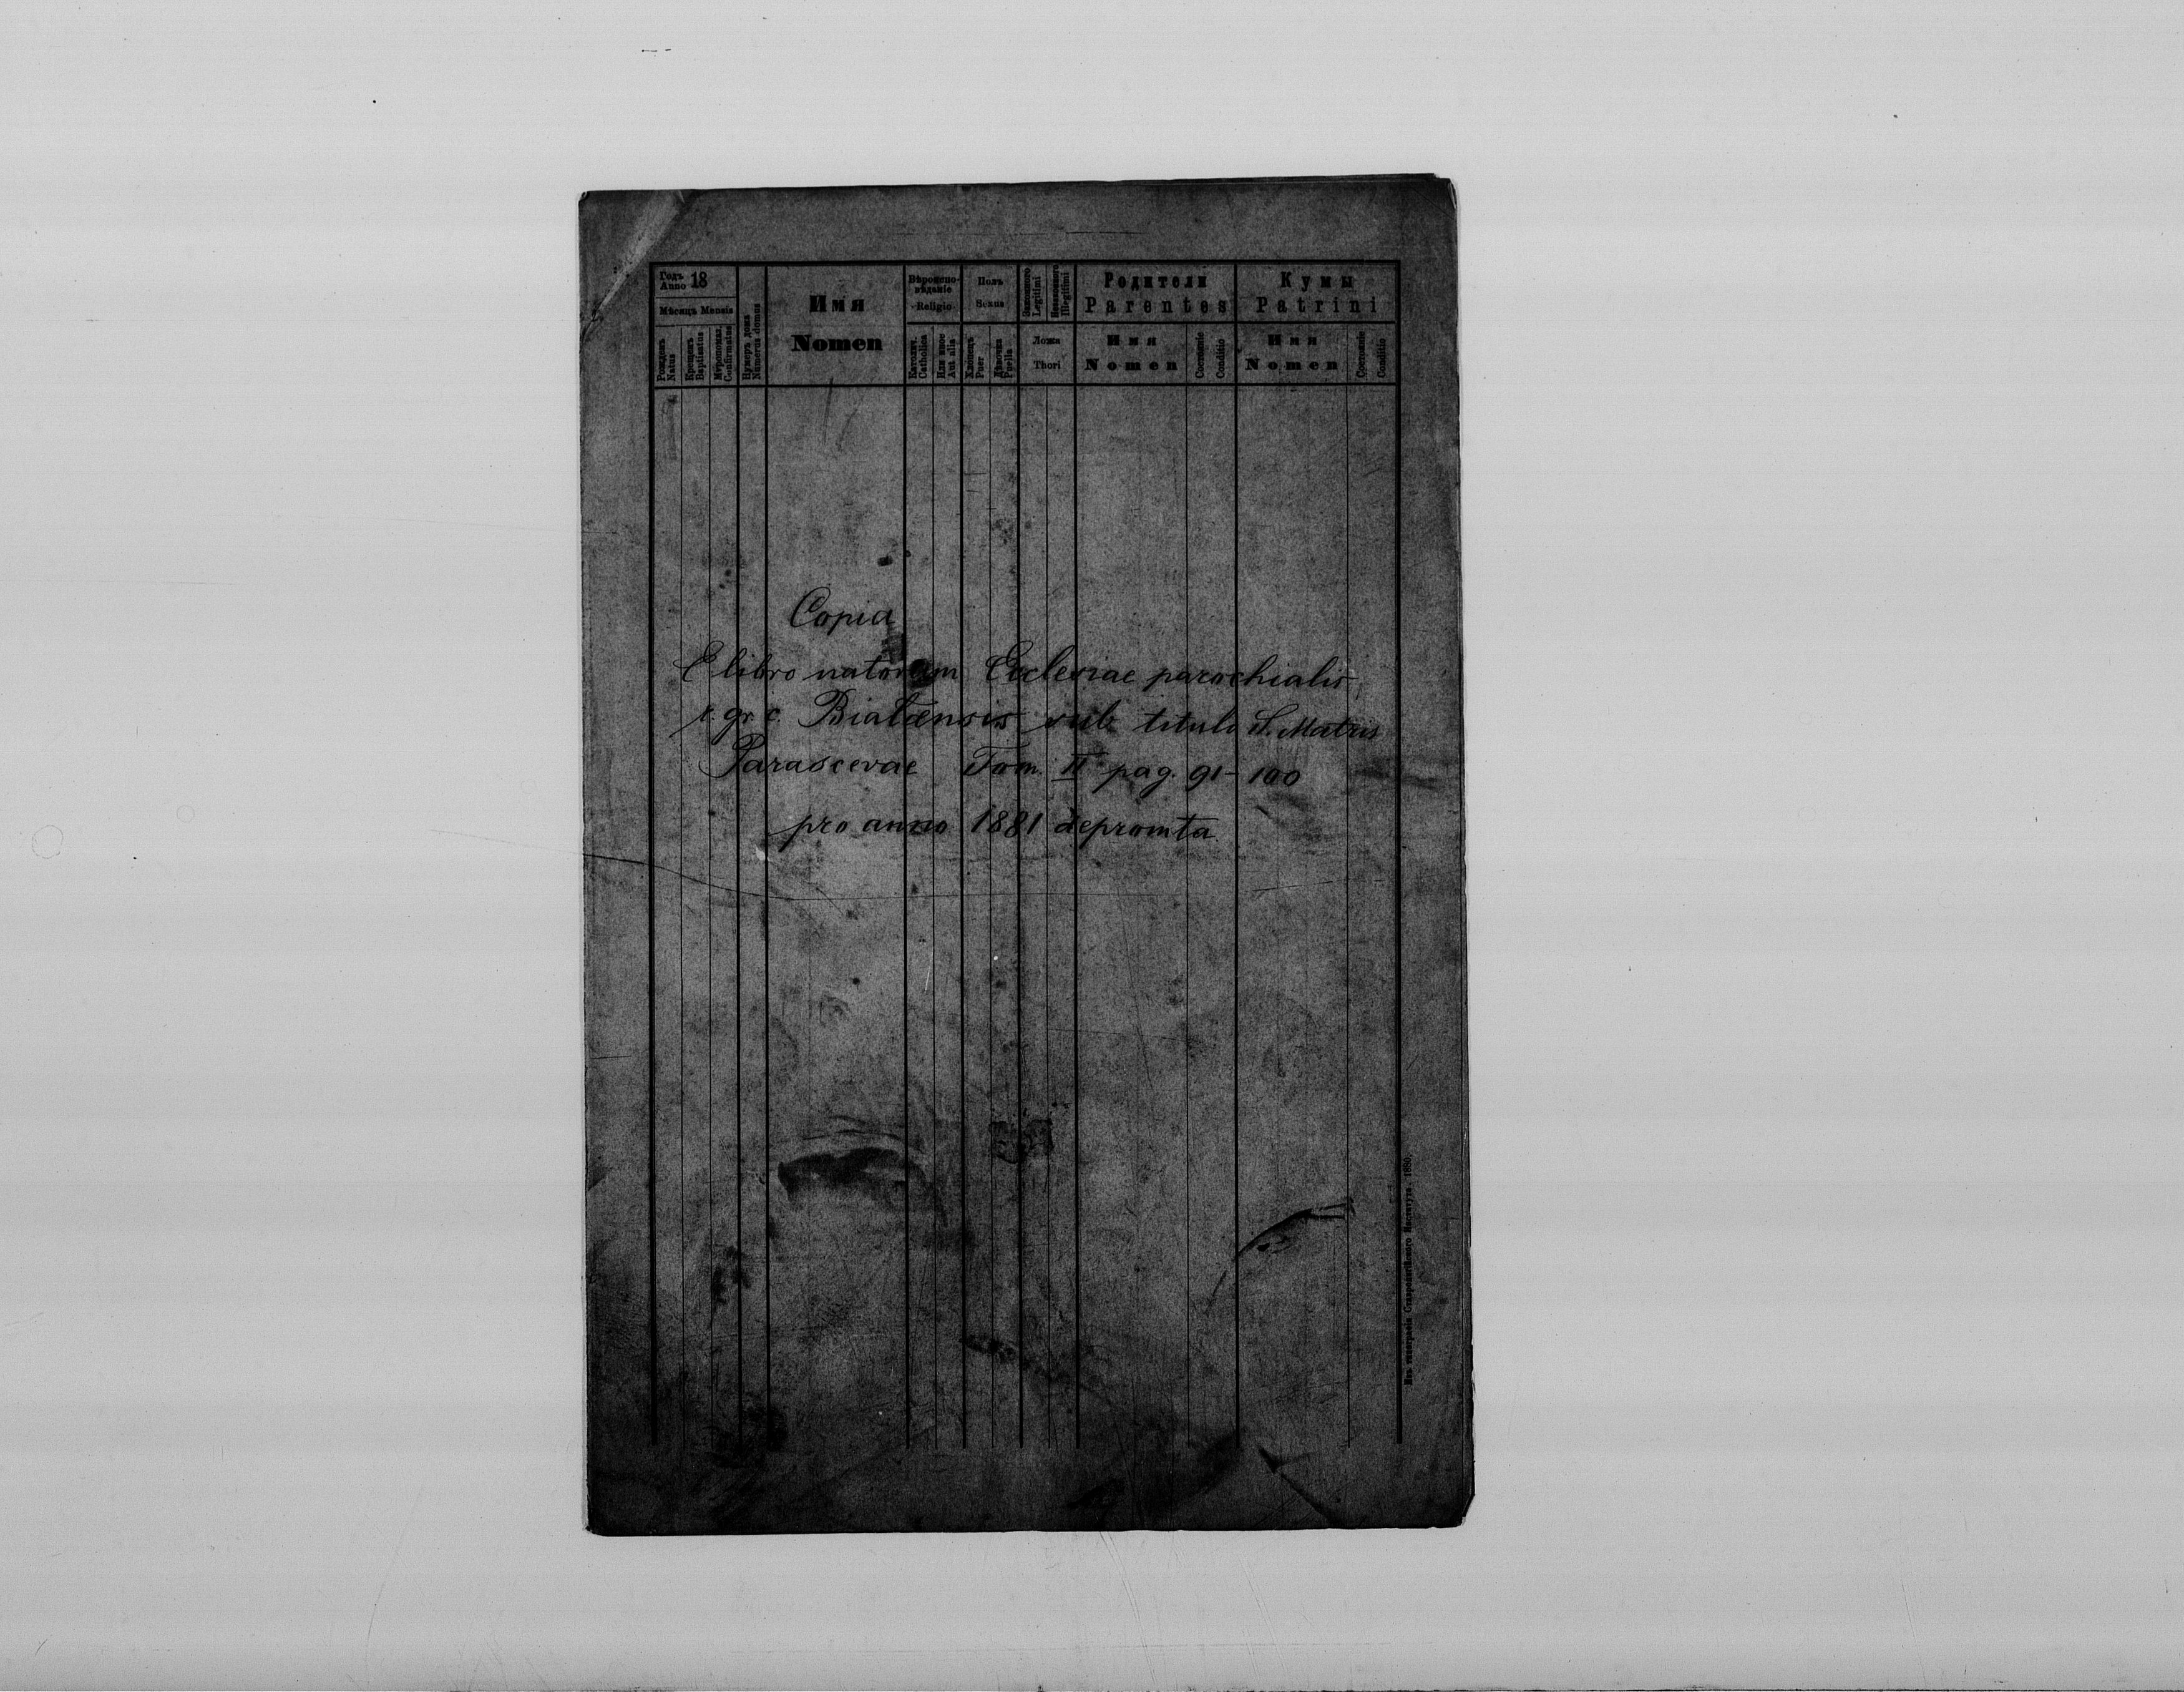 Годъ Anno 18
Мѣсяцъ Mensis
Рожденъ Natus
Крещенъ Baptisatus
Мѵропомаз. Confirmatus
Нумеръ дома Numerus domus
Имя
Nomen
Вѣроиспо-
вѣданіе
Religio
Католич. Catholica
Или иное Aut alia
Полъ
Sexus
Хлопецъ Puer
Дѣвочка Puella
Законного Legitimi
Незаконного Illegitimi
Ложа
Thori
Родители
Parentes
Имя
Nomen
Состояніе Conditio
Кумы
Patrini
Имя
Nomen
Состояніе Conditio
Copia
E libro natorum Ecclesiae parochialis
r. gr. c. Białaensis sub titulo S. Matris
Parascevae Tom. II pag. 91-100
pro anno 1881 depromta
Изъ типографіи Ставропигійского Института. 1880.